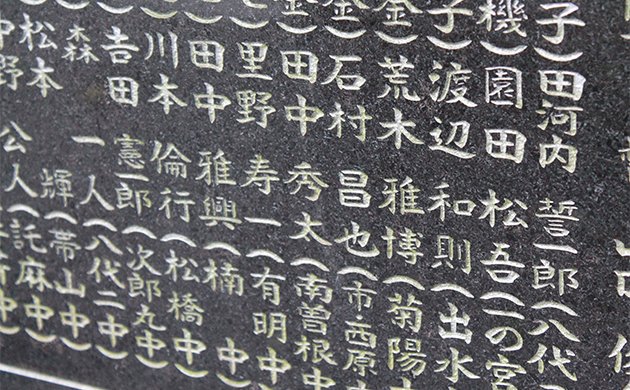 子）田河内 誓一郎（八代
機）園田 松吾（一の宮
子）渡辺 和則（出水
金）荒木 雅博（菊陽
金）石村 昌也（市・西原
金）田中 秀太（南曽根中
）里野 寿一（有明中
）田中 雅興（楠 中）
川本 倫行（松橋中）
𠮷田 憲一郎（次郎丸中）
森 一人（八代二中）
松本 輝（帯山中）
中野 公人（託麻中）